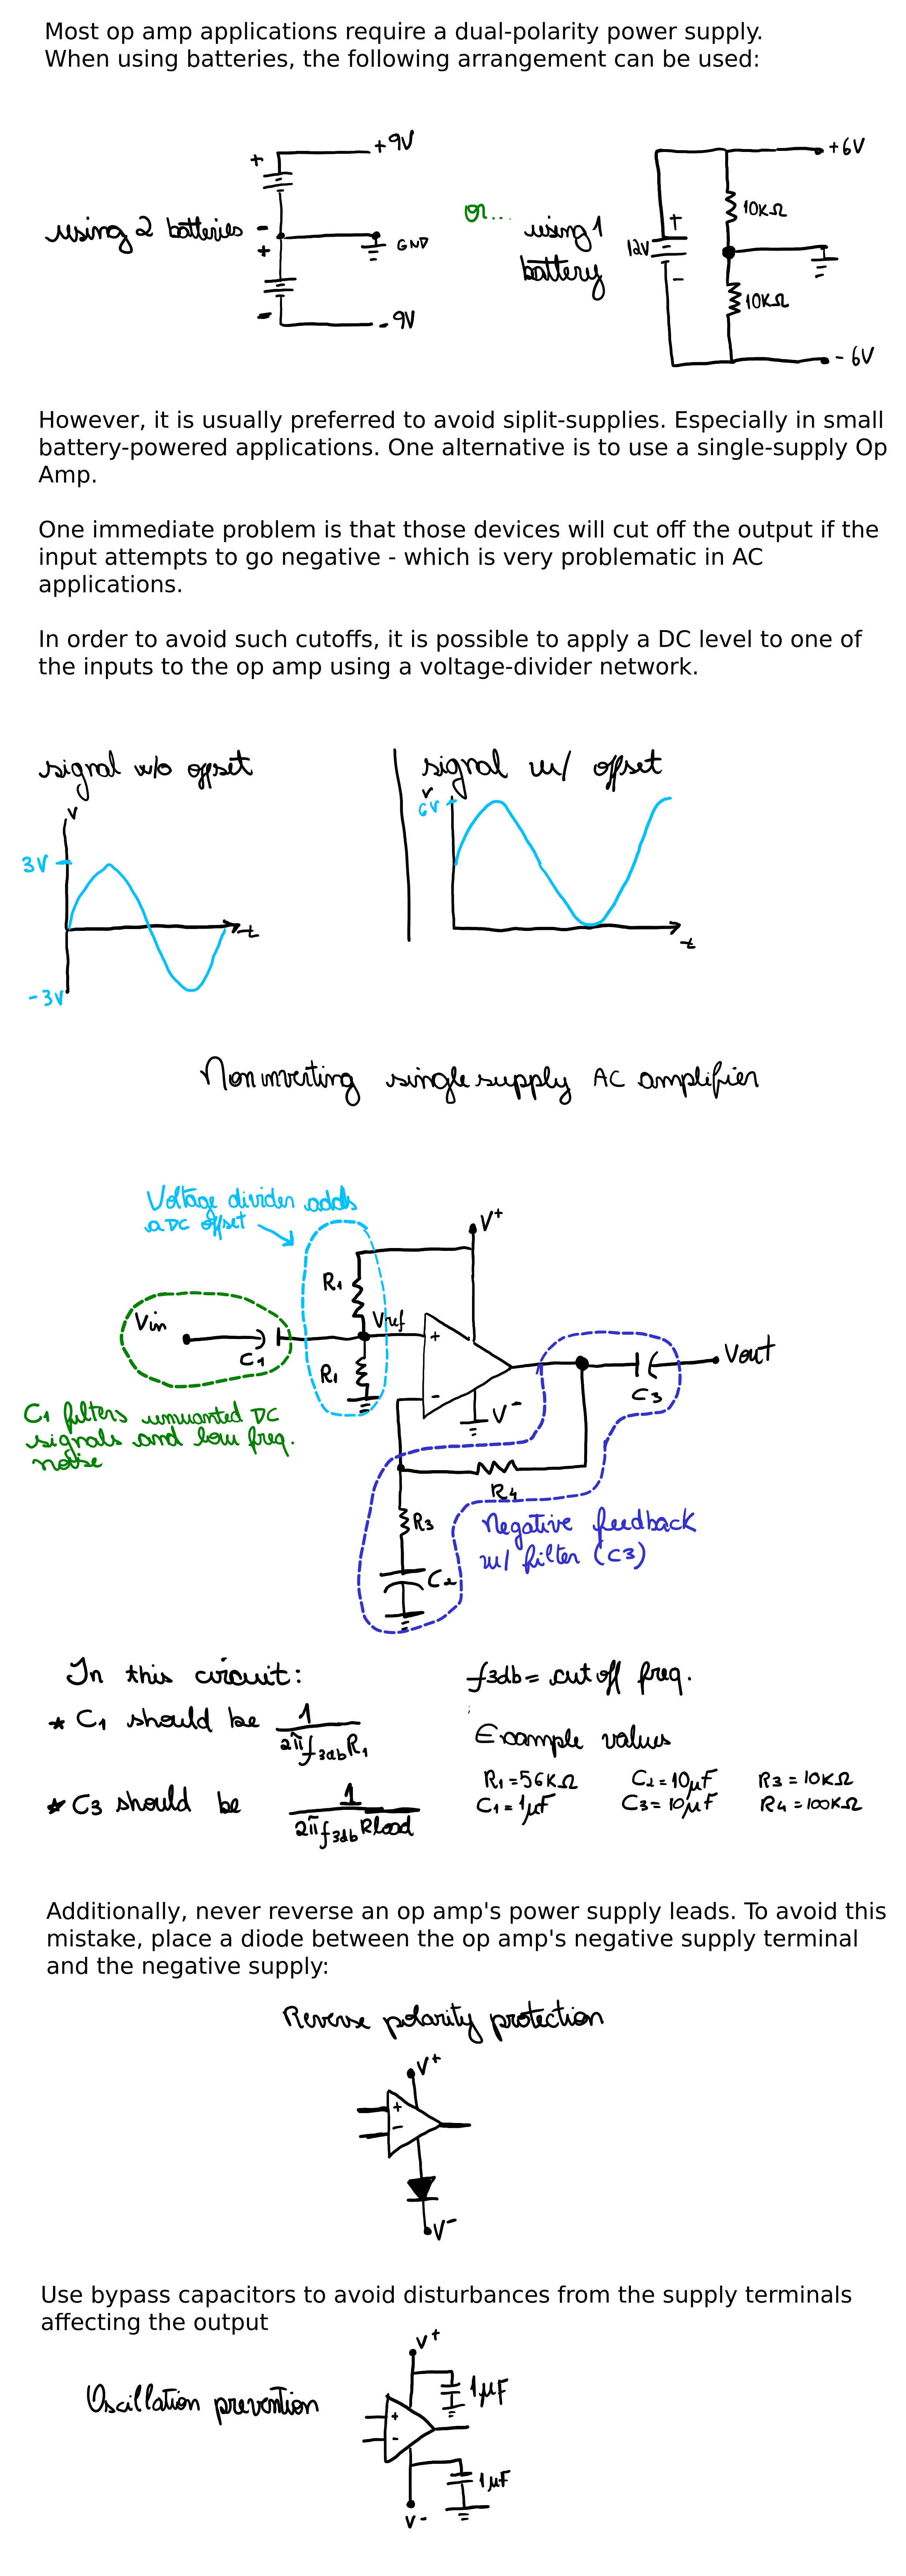 Most op amp applications require a dual-polarity power supply.
When using batteries, the following arrangement can be used:
+9V
+
using 2 batteries
-
+
GND
-
-9V
or...
using 1
battery
+6V
10KΩ
+
12V
-
10KΩ
-6V
However, it is usually preferred to avoid siplit-supplies. Especially in small
battery-powered applications. One alternative is to use a single-supply Op
Amp.
One immediate problem is that those devices will cut off the output if the
input attempts to go negative - which is very problematic in AC
applications.
In order to avoid such cutoffs, it is possible to apply a DC level to one of
the inputs to the op amp using a voltage-divider network.
signal w/o offset
V
3V
t
-3V
signal w/ offset
V
6V
t
Noninverting single supply AC amplifier
Voltage divider adds
a DC offset
V+
R1
Vin
Vref
+
C1
R1
-
V-
Vout
C3
C1 filters unwanted DC
signals and low freq.
noise
R4
R3
C2
Negative feedback
w/ filter (C3)
In this circuit:
* C1 should be 1/2πf3dbR1
* C3 should be 1/2πf3dbRload
f3db = cut off freq.
Example values
R1=56KΩ C2=10μF R3=10KΩ
C1=1μF C3=10μF R4=100KΩ
Additionally, never reverse an op amp's power supply leads. To avoid this
mistake, place a diode between the op amp's negative supply terminal
and the negative supply:
Reverse polarity protection
V+
+
-
V-
Use bypass capacitors to avoid disturbances from the supply terminals
affecting the output
V+
Oscillation prevention
1μF
+
-
1μF
V-